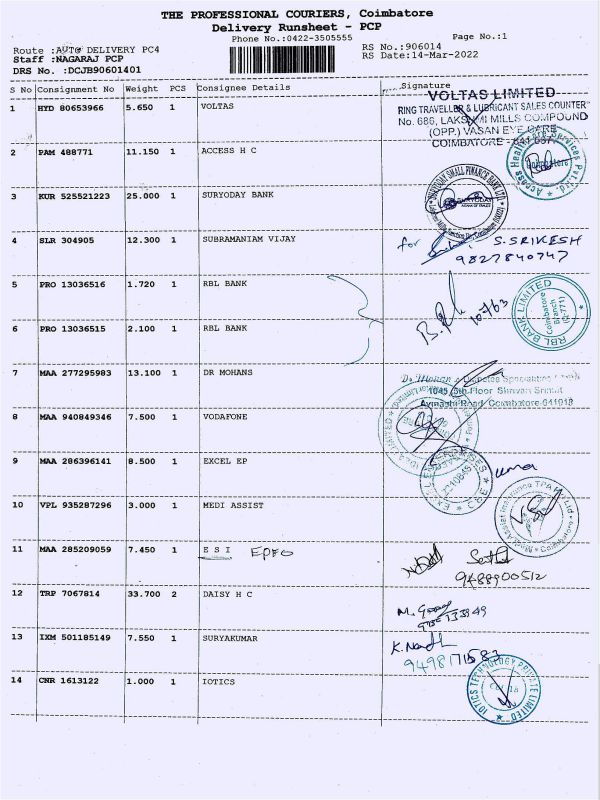 THE PROFESSIONAL COURIERS, Coimbatore
Delivery Runsheet - PCP
Phone No.:0422-3505555
Page No.:1
Route :AUTO DELIVERY PC4
RS No.:906014
Staff :NAGARAJ PCP
RS Date:14-Mar-2022
DRS No. :DCJB90601401
S No Consignment No Weight PCS Consignee Details Signature
1 HYD 80653966 5.650 1 VOLTAS
VOLTAS LIMITED
RING TRAVELLER & LUBRICANT SALES COUNTER
No. 686, LAKSHMI MILLS COMPOUND
(OPP.) VASAN EYE CARE
COIMBATORE - 641 037.
2 PAM 488771 11.150 1 ACCESS H C
Access Healthcare Services Pvt Ltd.
Coimbatore
3 KUR 525521223 25.000 1 SURYODAY BANK
SURYODAY SMALL FINANCE BANK LTD.
SURYODAY
4 SLR 304905 12.300 1 SUBRAMANIAM VIJAY
for S. SRIKESH
9827840747
5 PRO 13036516 1.720 1 RBL BANK
10763
RBL BANK LIMITED
Coimbatore
Branch
6 PRO 13036515 2.100 1 RBL BANK
7 MAA 277295983 13.100 1 DR MOHANS
Dr. Mohan Diabetes Specialities
1045, 5th Floor Shrivari Srimat
Avinashi Road, Coimbatore-641018
8 MAA 940849346 7.500 1 VODAFONE
9 MAA 286396141 8.500 1 EXCEL EP
uma
10 VPL 935287296 3.000 1 MEDI ASSIST
Medi Assist Insurance TPA Pvt Ltd
Coimbatore
11 MAA 285209059 7.450 1 E S I EPFO
9488900512
12 TRP 7067814 33.700 2 DAISY H C
13 IXM 501185149 7.550 1 SURYAKUMAR
9498171583
14 CNR 1613122 1.000 1 IOTICS
IOTICS TECHNOLOGY PRIVATE LIMITED